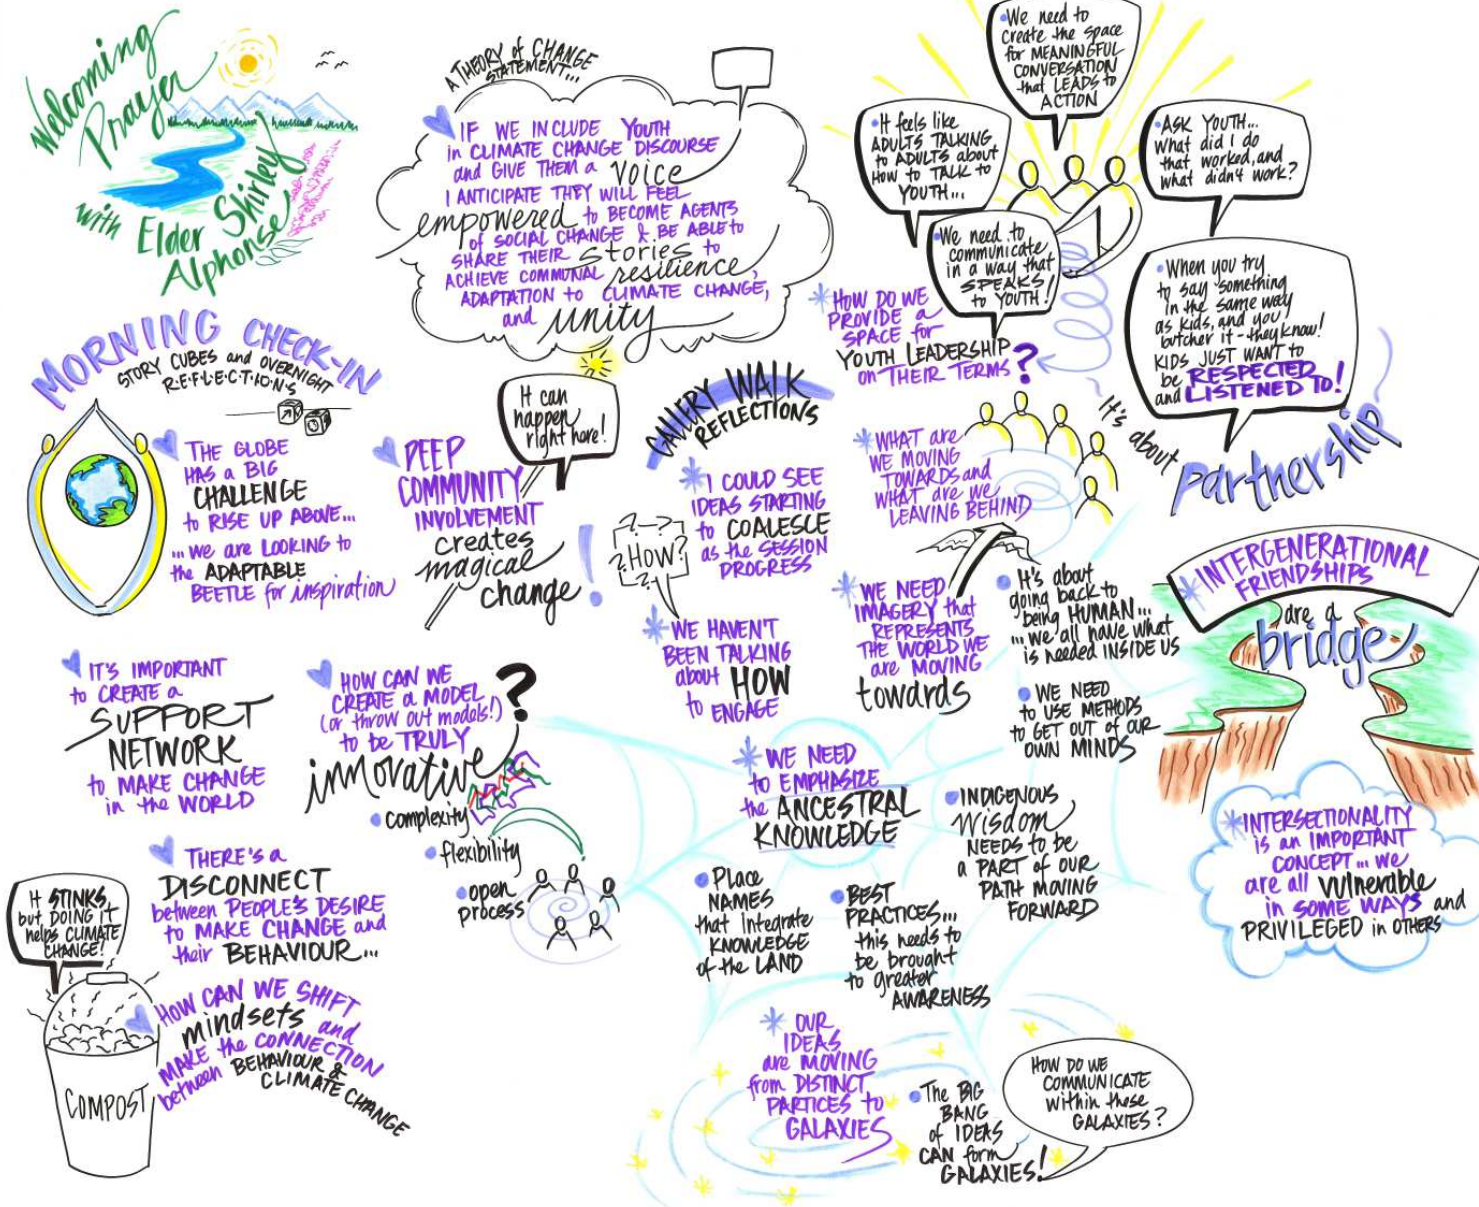 Welcoming
Prayer
with Elder Shirley
Alphonse
A THEORY of CHANGE
STATEMENT...
IF WE INCLUDE YOUTH
in CLIMATE CHANGE DISCOURSE
and GIVE THEM a VOICE
I ANTICIPATE THEY WILL FEEL
empowered to BECOME AGENTS
of SOCIAL CHANGE & BE ABLE to
SHARE THEIR stories to
ACHIEVE COMMUNAL resilience,
ADAPTATION to CLIMATE CHANGE,
and unity
We need to
create the space
for MEANINGFUL
CONVERSATION
that LEADS to
ACTION
It feels like
ADULTS TALKING
to ADULTS about
HOW to TALK to
YOUTH...
ASK YOUTH...
what did I do
that worked, and
what didn't work?
We need to
communicate
in a way that
SPEAKS
to YOUTH!
When you try
to say something
in the same way
as kids, and you
butcher it - they know!
KIDS JUST WANT to
be RESPECTED
and LISTENED TO!
HOW DO WE
PROVIDE a
SPACE for
YOUTH LEADERSHIP
on THEIR TERMS?
It's about
partnership
MORNING CHECK-IN
STORY CUBES and OVERNIGHT
R.E.F.L.E.C.T.I.O.N.S
THE GLOBE
HAS a BIG
CHALLENGE
to RISE UP ABOVE...
...we are LOOKING to
the ADAPTABLE
BEETLE for inspiration
DEEP
COMMUNITY
INVOLVEMENT
creates
magical
change!
It can
happen
right here!
GALLERY WALK
REFLECTIONS
I COULD SEE
IDEAS STARTING
to COALESCE
as the SESSION
PROGRESS
?-->?
?HOW?
?-->
WE HAVEN'T
BEEN TALKING
about HOW
to ENGAGE
WHAT are
WE MOVING
TOWARDS and
WHAT are we
LEAVING BEHIND
WE NEED
IMAGERY that
REPRESENTS
THE WORLD WE
are MOVING
towards
It's about
going back to
being HUMAN...
...we all have what
is needed INSIDE US
WE NEED
to USE METHODS
to GET OUT of OUR
OWN MINDS
INTERGENERATIONAL
FRIENDSHIPS
are a
bridge
IT'S IMPORTANT
to CREATE a
SUPPORT
NETWORK
to MAKE CHANGE
in the WORLD
HOW CAN WE
CREATE a MODEL
(or throw out models!)
to be TRULY
innovative?
complexity
flexibility
open
process
WE NEED
to EMPHASIZE
the ANCESTRAL
KNOWLEDGE
Place
NAMES
that integrate
KNOWLEDGE
of the LAND
BEST
PRACTICES...
this needs to
be brought
to greater
AWARENESS
INDIGENOUS
Wisdom
NEEDS to be
a PART of OUR
PATH MOVING
FORWARD
INTERSECTIONALITY
is an IMPORTANT
CONCEPT... we
are all vulnerable
in SOME WAYS and
PRIVILEGED in OTHERS
THERE'S a
DISCONNECT
between PEOPLE'S DESIRE
to MAKE CHANGE and
their BEHAVIOUR...
It STINKS,
but DOING IT
helps CLIMATE
CHANGE!
COMPOST
HOW CAN WE SHIFT
mindsets and
MAKE the CONNECTION
between BEHAVIOUR &
CLIMATE CHANGE
OUR
IDEAS
are MOVING
from DISTINCT
PARTICES to
GALAXIES
The BIG
BANG
of IDEAS
CAN form
GALAXIES!
HOW DO WE
COMMUNICATE
within these
GALAXIES?